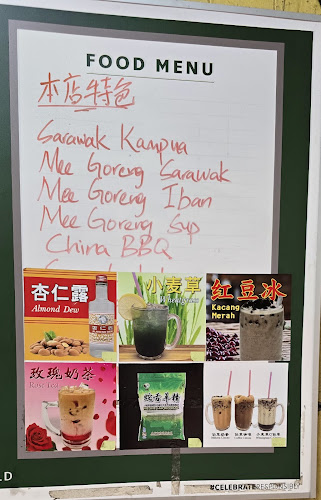 FOOD MENU
本店特色
Sarawak Kampua
Mee Goreng Sarawak
Mee Goreng Iban
Mee Goreng Sup
China BBQ
杏仁露
Almond Dew
小麦草
Wheatgrass
红豆冰
Kacang
Merah
玫瑰奶茶
Rose Tea
#CELEBRATERESPONSIBLY